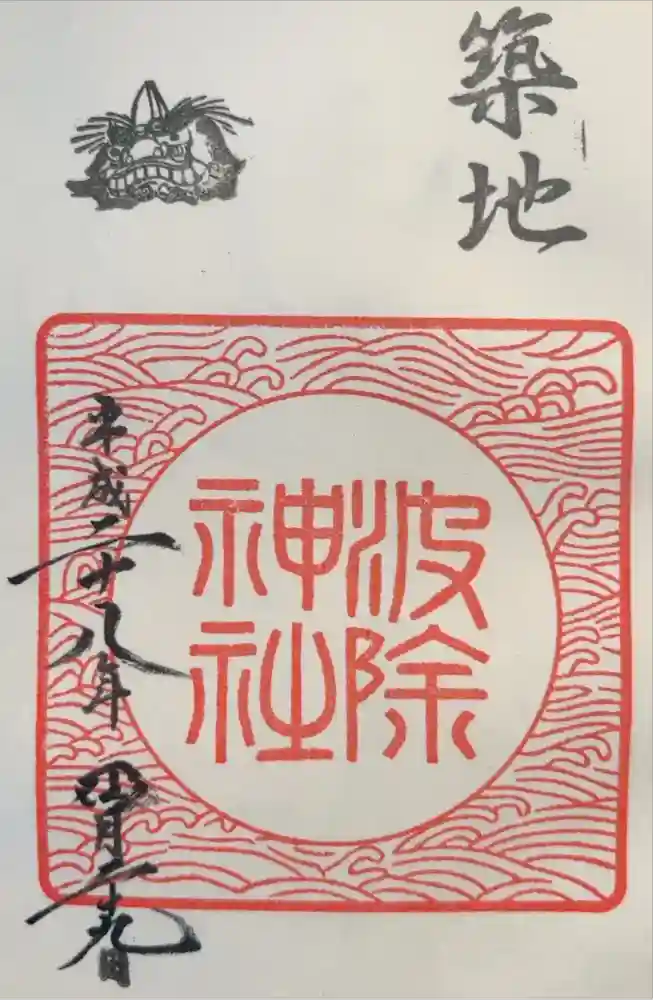 築地
波除
神社
平成二十八年 四月二十九日